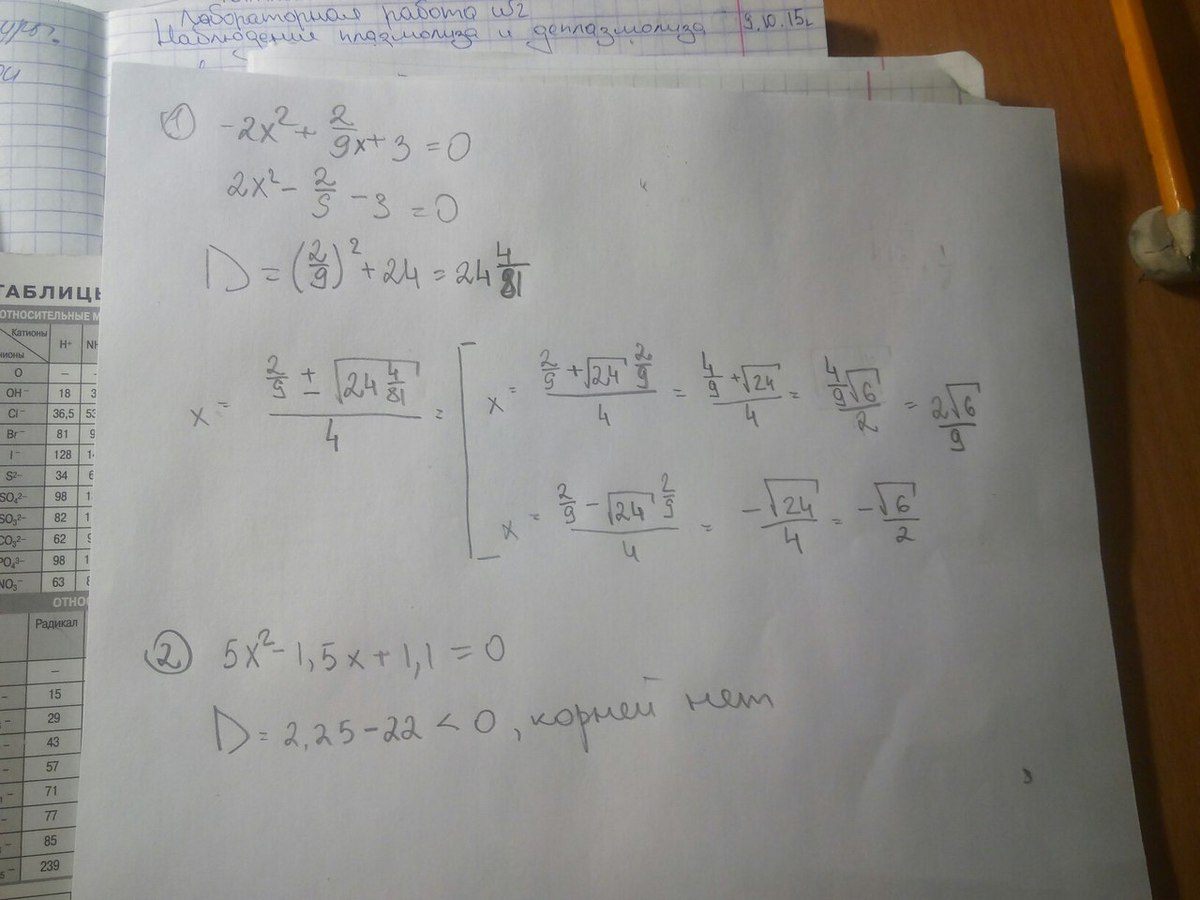 Лабораторная работа №2
Наблюдение плазмолиза и деплазмолиза
9.10.15г
① -2x² + 2/9x + 3 = 0
2x² - 2/9 - 3 = 0
D = (2/9)² + 24 = 24 4/81
x = (2/9 ± √(24 4/81))/4 = [ x = (2/9 + √24 2/9)/4 = (4/9 + √24)/4 = (4/9√6)/2 = 2√6/9
x = (2/9 - √24 2/9)/4 = -√24/4 = -√6/2
② 5x² - 1,5x + 1,1 = 0
D = 2,25 - 22 < 0, корней нет
ТАБЛИЦЫ
ОТНОСИТЕЛЬНЫЕ М
Катионы
H⁺
O –
OH⁻ 18
Cl⁻ 36,5 53
Br⁻ 81
I⁻ 128
S²⁻ 34
SO₄²⁻ 98
SO₃²⁻ 82
CO₃²⁻ 62
PO₄³⁻ 98
NO₃⁻ 63
ОТНО
Радикал
–
15
29
43
57
71
77
85
239